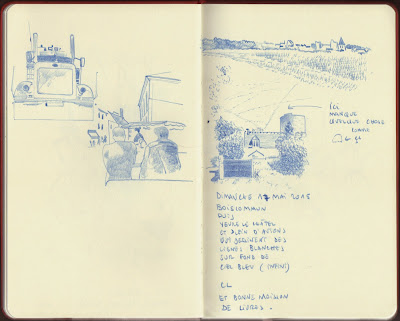 ICI
MANQUE
QUELQUE CHOSE
DIMANCHE 17 MAI 2015
BOISCOMMUN
PUIS
YEVRE LE CHÂTEL
ET PLEIN D'AVIONS
QUI DESSINENT DES
LIGNES BLANCHES
SUR FOND DE
CIEL BLEU (INFINI)
CL
ET BONNE MOISSON
DE LIVRES.